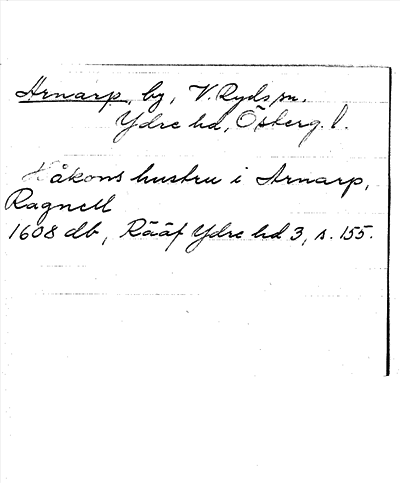 Arnarp, by, V. Ryds sn.
Ydre hd, Östergr. l.
Håkons hustru i Arnarp,
Ragnell
1608 db, Rääf Ydre hd 3, s. 155.